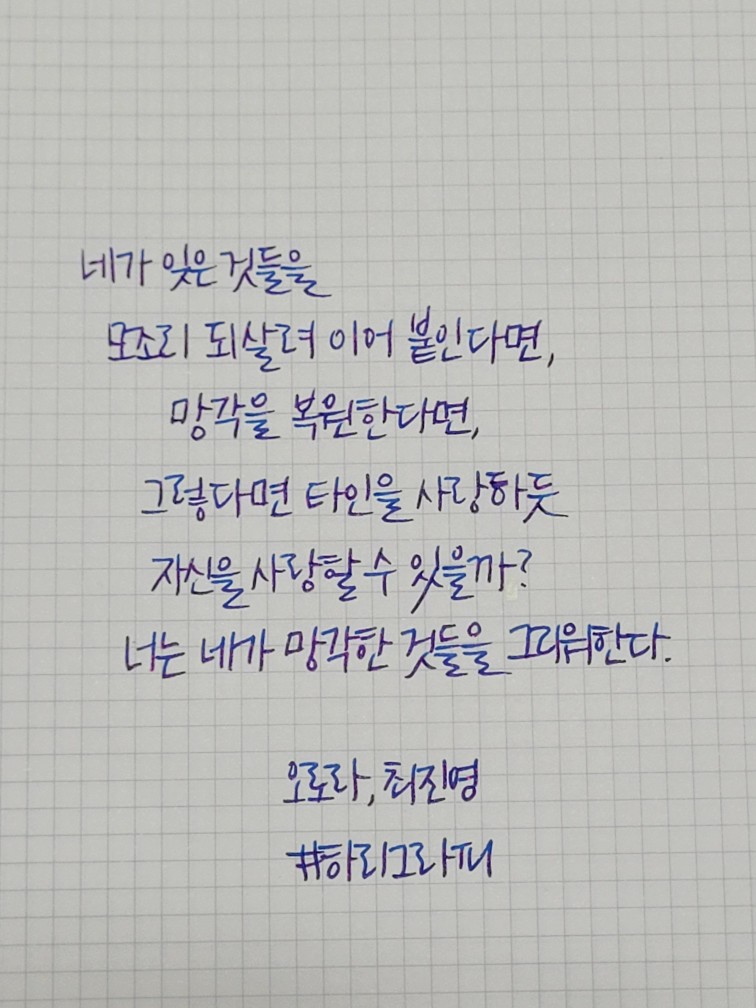 네가 잊은 것들을
모조리 되살려 이어 붙인다면,
망각을 복원한다면,
그렇다면 타인을 사랑하듯
자신을 사랑할 수 있을까?
너는 네가 망각한 것들을 그리워한다.
오로라, 최진영
#하리그라피